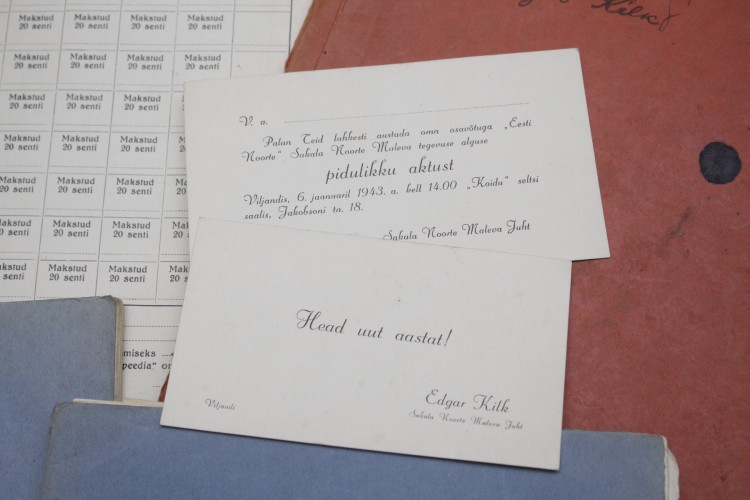 Makstud Makstud Makstud Makstud
20 senti 20 senti 20 senti 20 senti
Makstud Makstud Makstud Makstud Makstud
20 senti 20 senti 20 senti 20 senti 20 senti
Makstud Makstud Makstud Makstud
20 senti 20 senti 20 senti 20 senti
Makstud Makstud Makstud
20 senti 20 senti 20 senti
Makstud Makstud Makstud
20 senti 20 senti 20 senti
Makstud Makstud Makstud
20 senti 20 senti 20 senti
Makstud Makstud
20 senti 20 senti
miseks
peedia“
Kilk
V. a.
Palun Teid lahkesti austada oma osavõtuga „Eesti
Noorte“ Sakala Noorte Maleva tegevuse alguse
pidulikku aktust
Viljandis, 6. jaanuaril 1943. a. kell 14.00 „Koidu“ seltsi
saalis, Jakobsoni tn. 18.
Sakala Noorte Maleva Juht
Head uut aastat!
Viljandi
Edgar Kilk
Sakala Noorte Maleva Juht